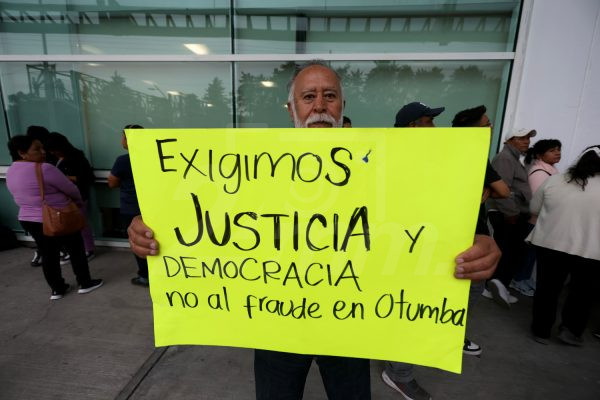 Exigimos
JUSTICIA y
DEMOCRACIA
no al fraude en Otumba